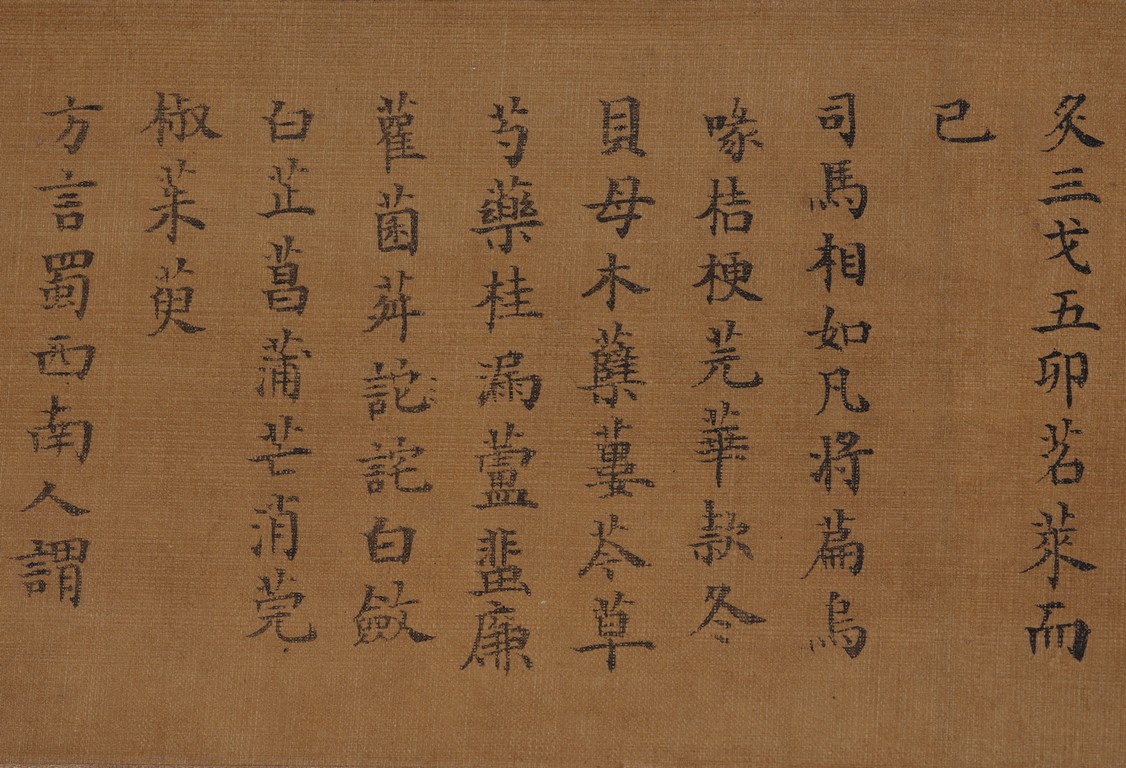 炙三戈五卯茗萊而
已
司馬相如凡將篇烏
喙桔梗芫華款冬
貝母木蘗蔞芩草
芍藥桂漏蘆蜚廉
雚菌荈詑詫白斂
白芷菖蒲芒消莞
椒茱萸
方言蜀西南人謂